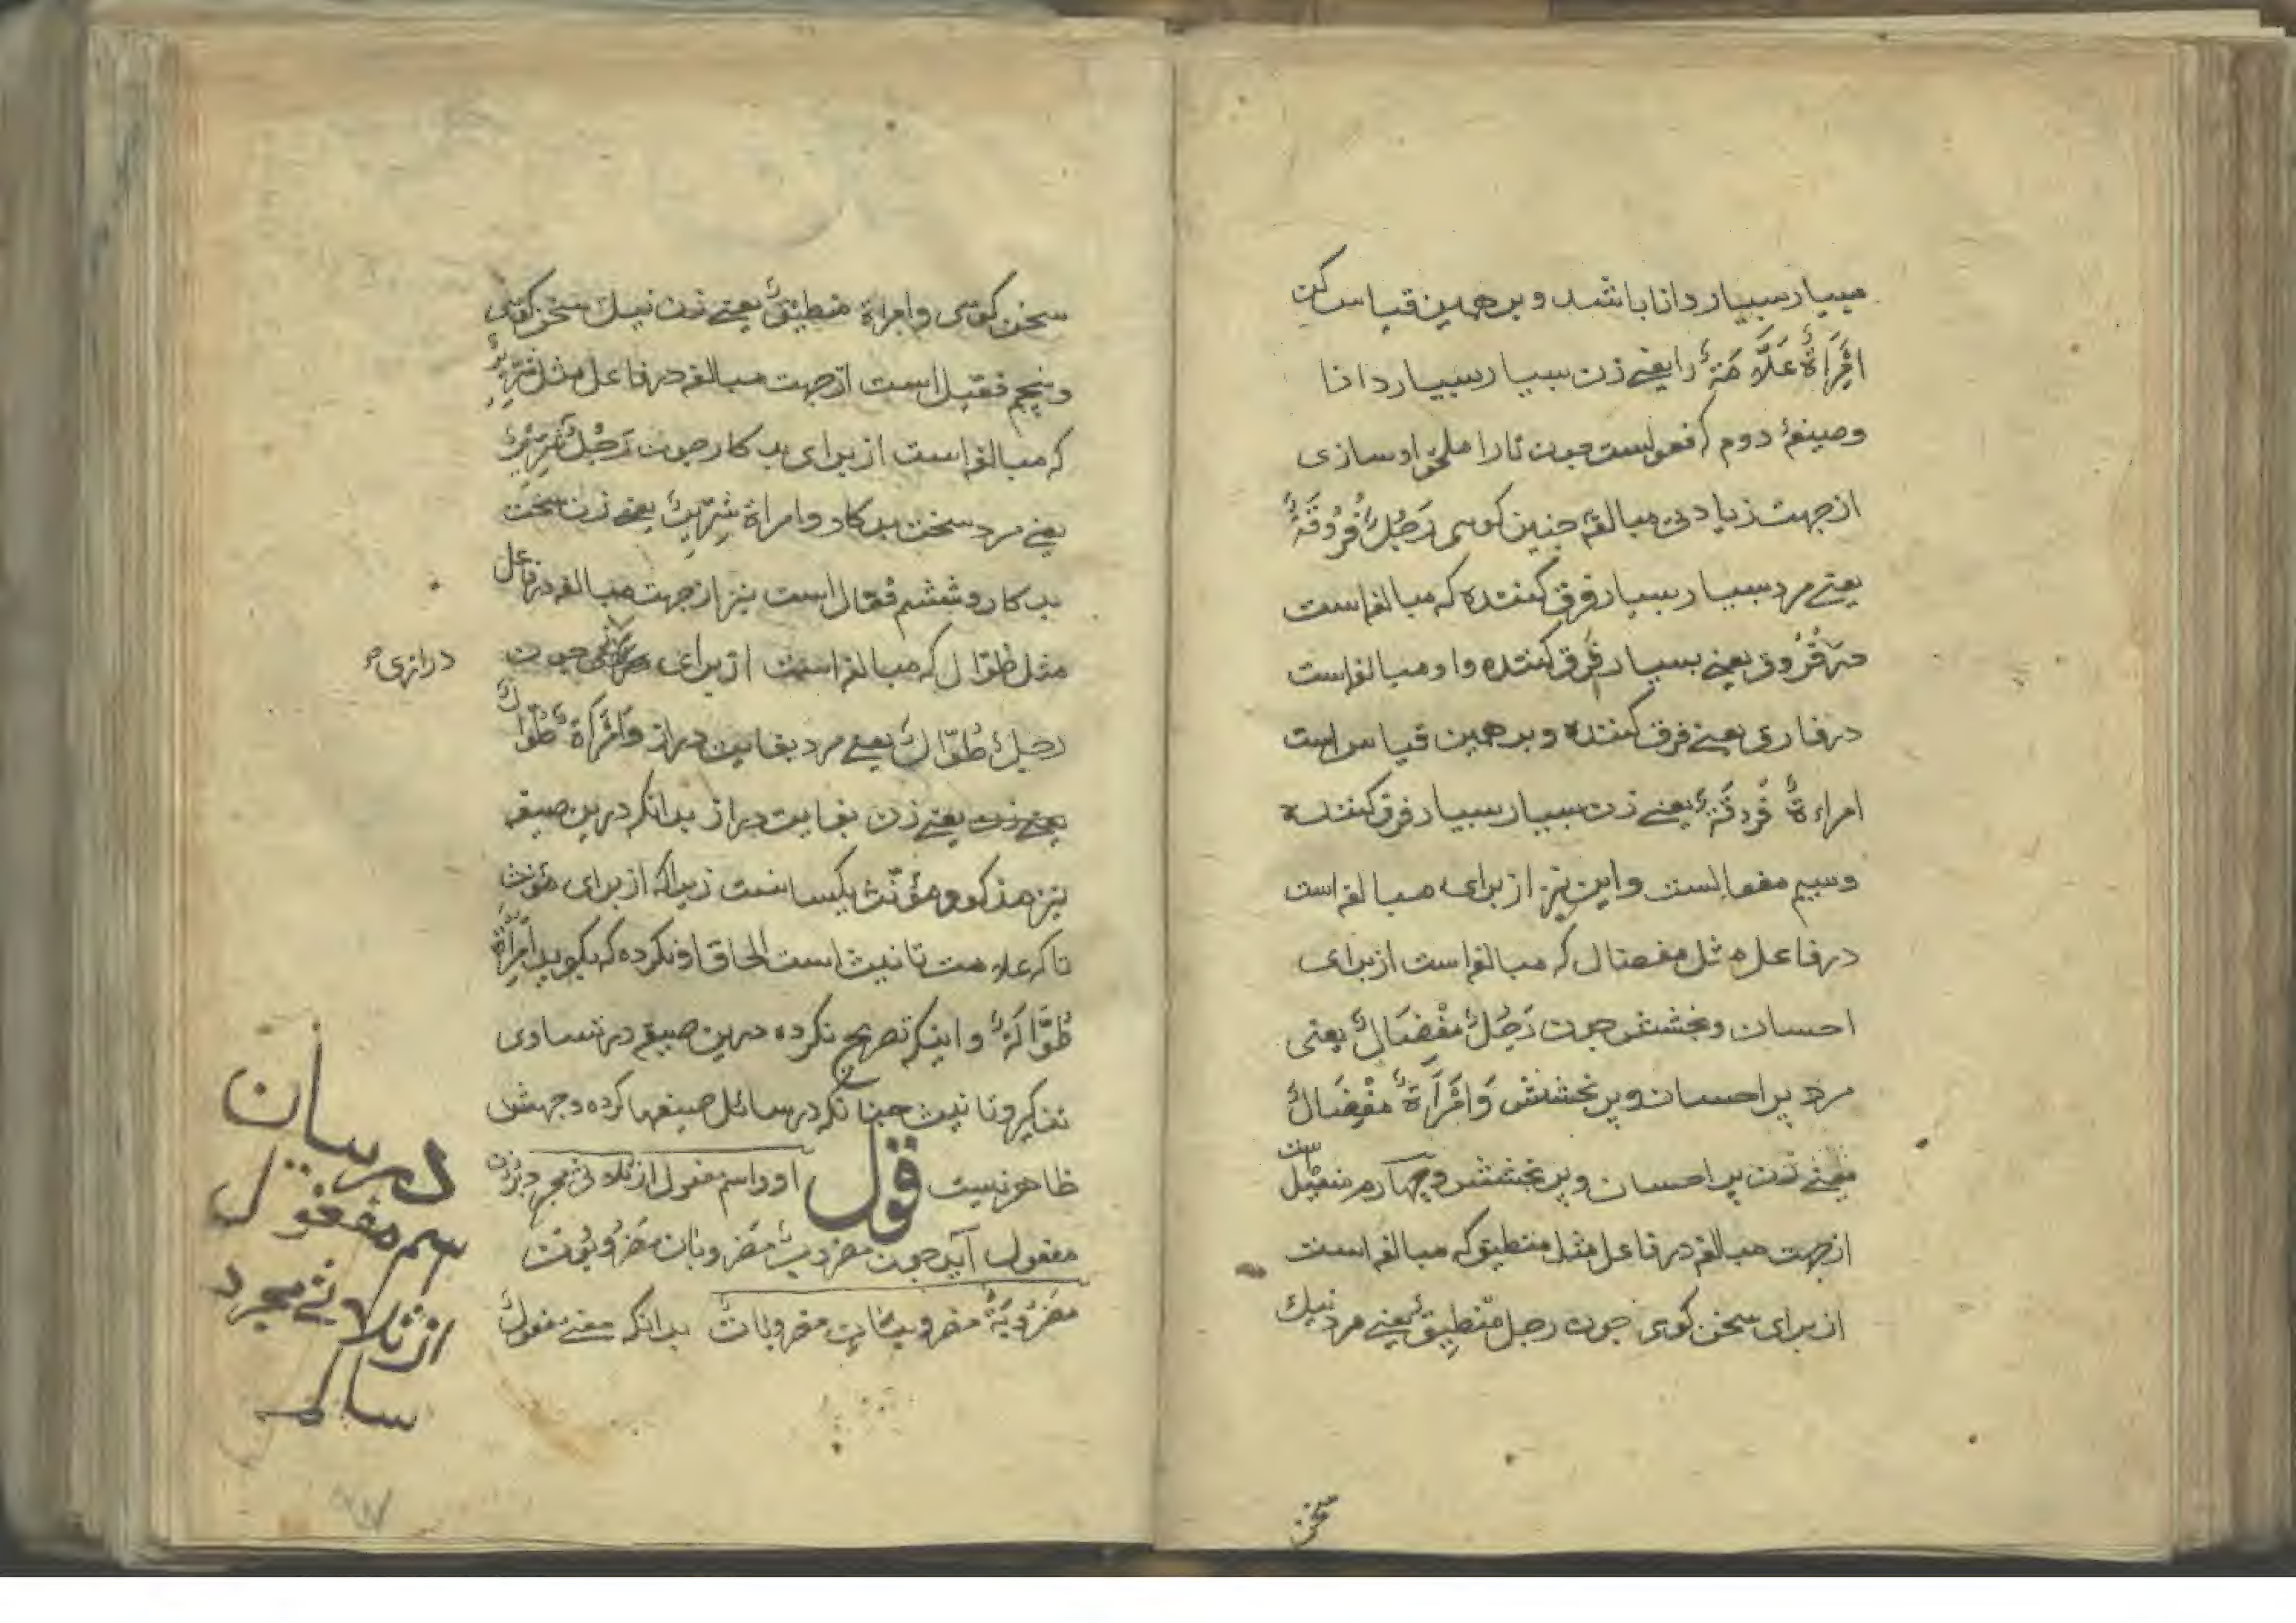 بسیار بسیار دانا باشد و برهمین قیاس کن
اِمْرَاَةٌ عَلَّامَةٌ را یعنے زن بسیار بسیار دانا
وصیغهٔ دوم که فعولست چون تا را ملحق او سازی
از جهت زیادتی مبالغه چنین کوی رَجُلٌ فَرُوقَةٌ
یعنے مرد بسیار بسیار فرق کننده که مبالغه است
فَرُوق یعنے بسیار فرق کننده و او مبالغه است
در فارق یعنے فرق کننده و برهمین قیاس است
امراءةٌ فَرُوقَةٌ یعنے زن بسیار بسیار فرق کننده
وسیم مفعالست و این نیز از برای مبالغه است
در فاعل مثل مفضال که مبالغه است از برای
احسان و بخشش چون رَجُلٌ مِفْضَالٌ یعنی
مرد پر احسان و پر بخشش وَامْرَأَةٌ مِفْضَالٌ
یعنے زن پر احسان و پر بخشش و چهارم مفعیل است
از جهت مبالغه در فاعل مثل منطیق که مبالغه است
از برای سخن کوی چون رجل مِنْطِیقٌ یعنے مرد نیک
سخن
سخن کوی وامراة منطیقٌ یعنے زن نیک سخن کوی
و پنجم فعّیل است از جهت مبالغه در فاعل مثل شِرِّیرٌ
که مبالغه است از برای بد کار چون رَجُلٌ شِرِّیرٌ
یعنے مرد سخت بد کار و امراة شِرِّیرٌ یعنے زن سخت
بد کار و ششم فُعّال است نیز از جهت مبالغه در فاعل
مثل طوّال که مبالغه است از برای چون
درازی
رجلٌ طُوَّالٌ یعنے مرد بغایت دراز وَامْرَأَةٌ طُوَّالٌ
یعنے زن یعنے زن بغایت دراز بدانکه درین صیغه
نیز مذکر و مؤنّث یکسانست زیراکه از برای مؤنث
تا که علامت تانیث است الحاق او نکرده که بکوید اِمْرَأَةٌ
طُوَّالَةٌ و اینکه تصریح نکرده درین صیغه در تساوی
تذکیر و تانیث چنانکه در سائل صیغها کرده وجهش
ظاهر نیست قول او و اسم مفعول از ثلاثی مجرد بر وزن
مفعول آید چون مضروبٌ مضروبان مضروبُونَ
مَضْرُوبَةٌ مضروبتانِ مضروباتٌ بدانکه معنے مفعول
در بیان
اسم مفعول
از ثلاثے مجرد
سالم